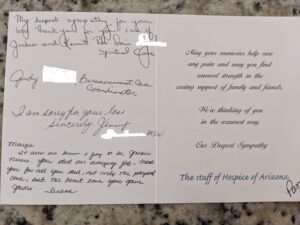 My deepest sympathy for your
loss. Thank you for your care of
Jackie
Spiritual Care
Judy Bereavement Care
Coordinator
I am sorry for your loss
Sincerely, Jenny
MSW
Margie
It was an honor & joy to be Jackie's
nurse. You did an amazing job. Thank
you for all you did, not only the physical
care, but the
Jackie
May your memories help ease
any pain and may you find
unused strength in the
caring support of family and friends.
We're thinking of you
in the warmest way.
Our Deepest Sympathy
The staff of Hospice of Arizona